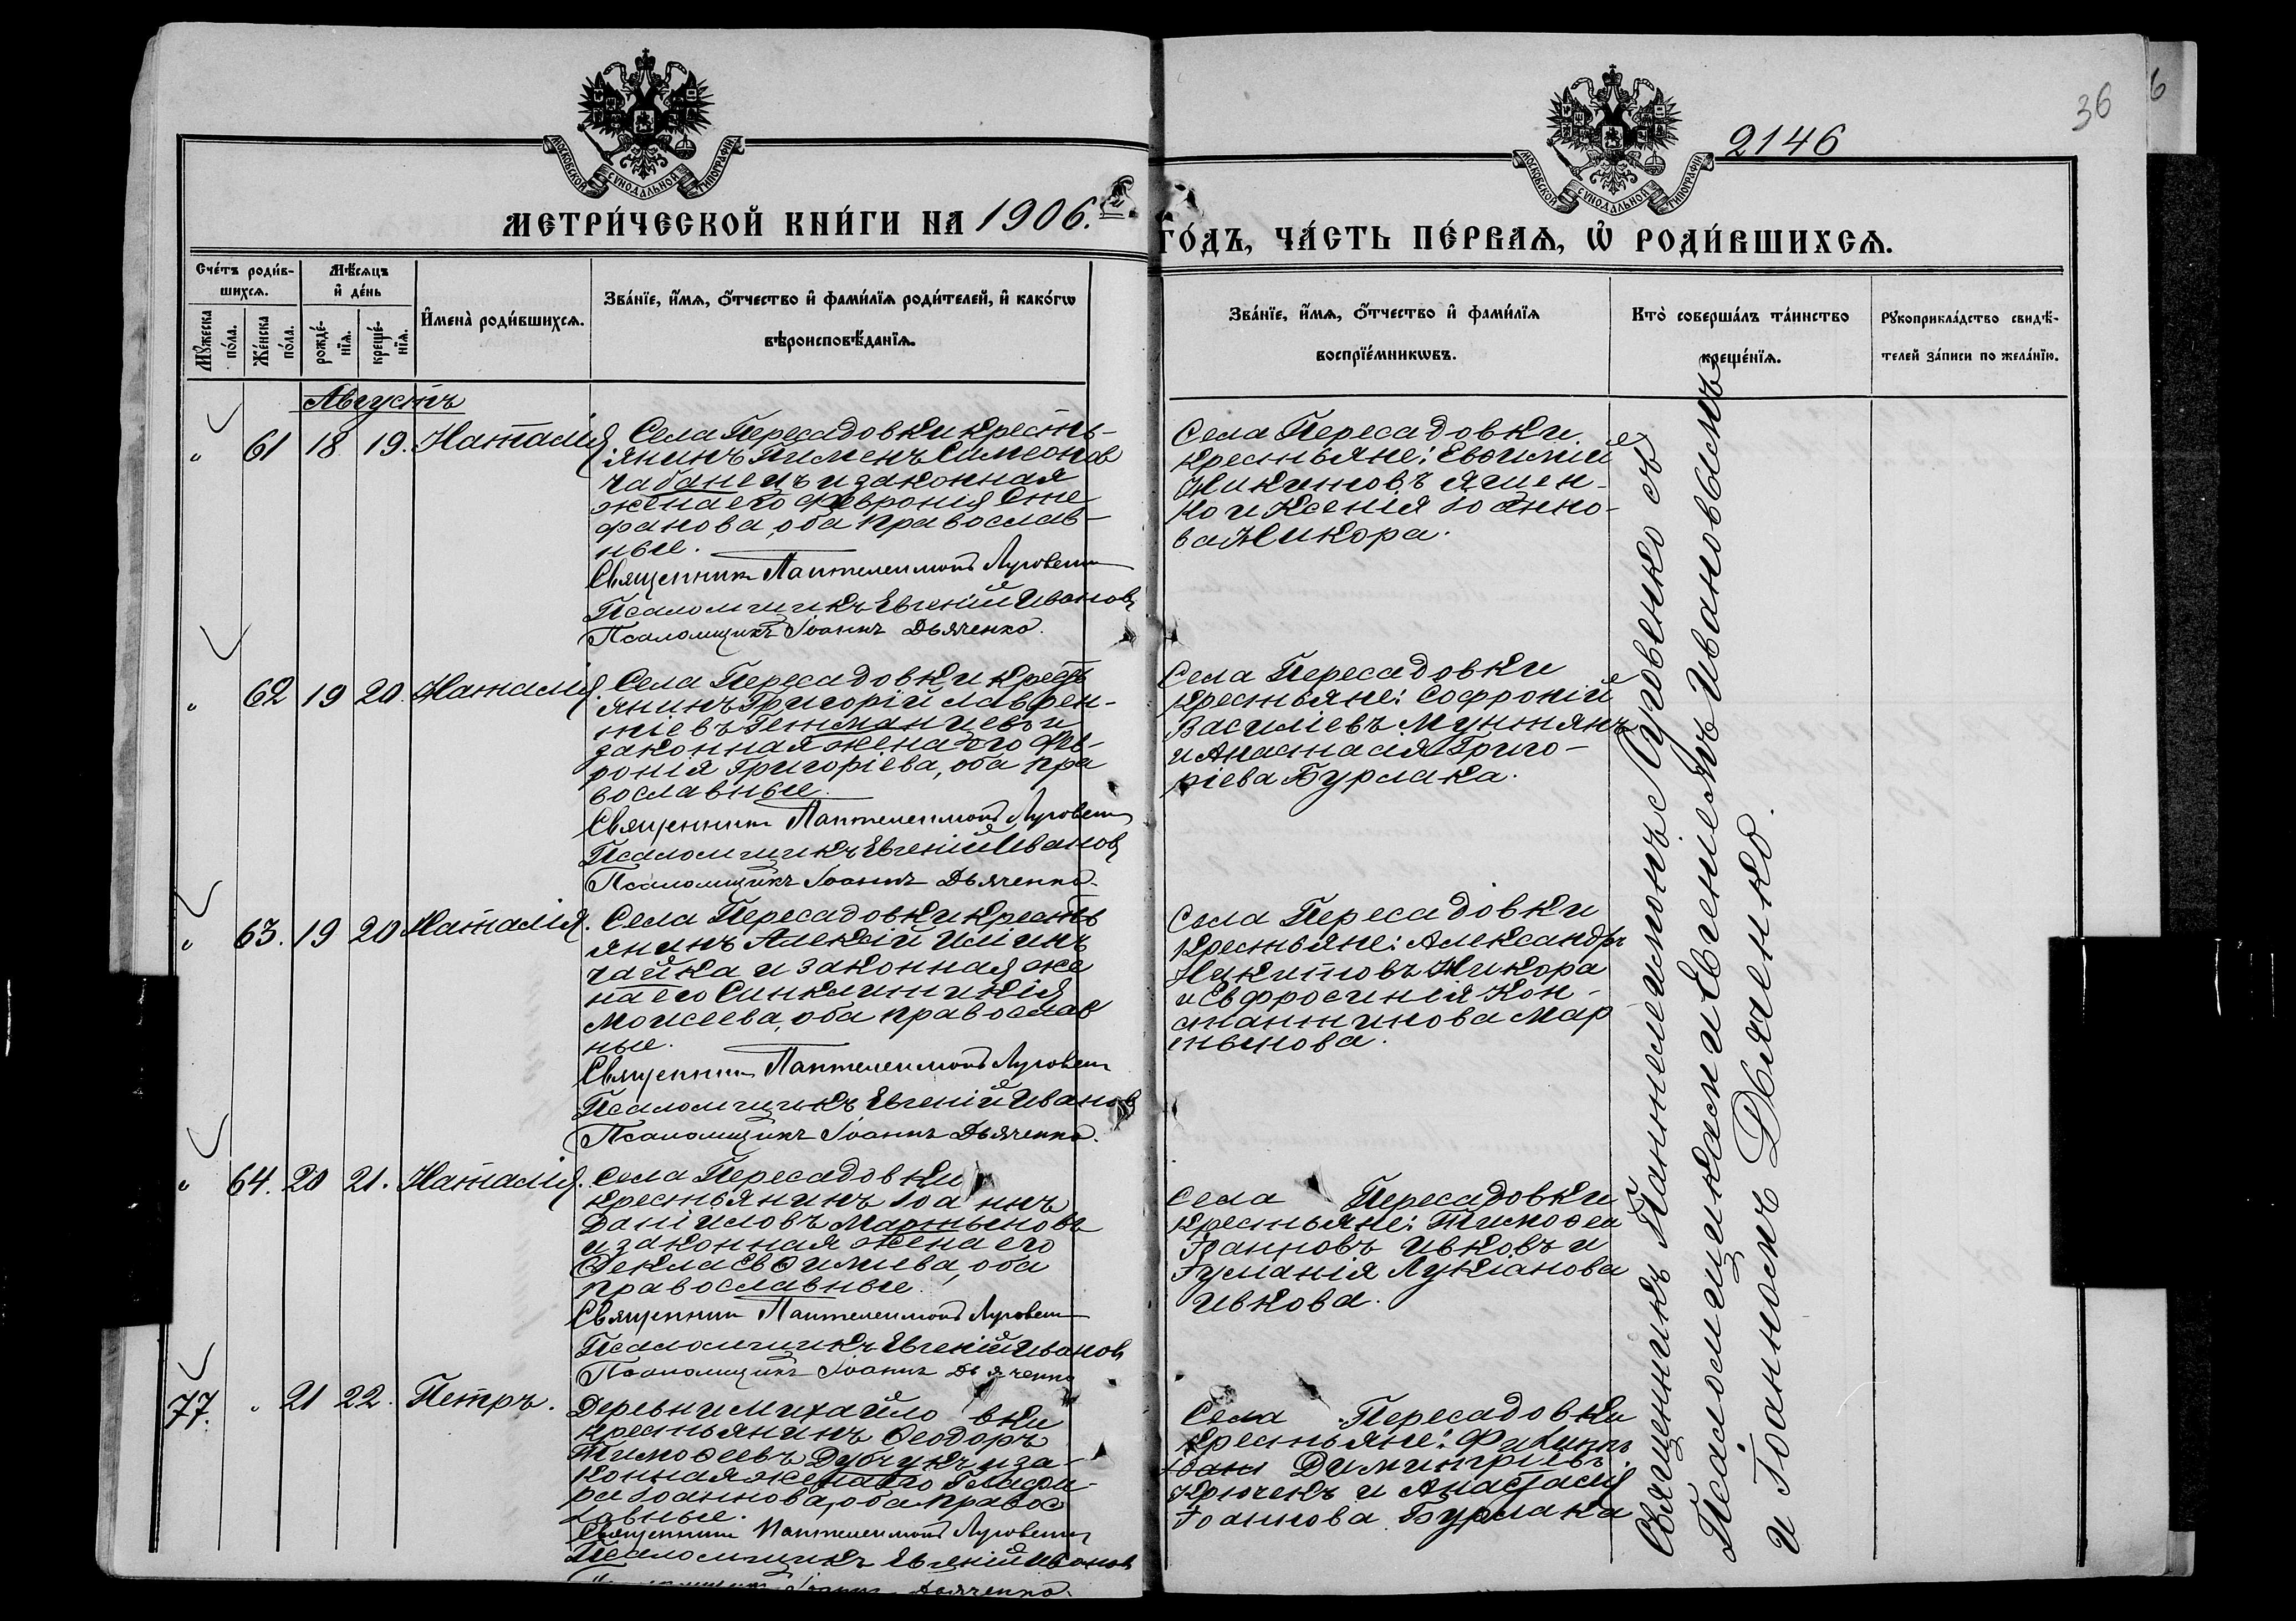 36
6
2146
МОСКОВСКОЙ СѴНОДАЛЬНОЙ ТИПОГРАФІИ
МОСКОВСКОЙ СѴНОДАЛЬНОЙ ТИПОГРАФІИ
МЕТРИ́ЧЕСКОЙ КНИ́ГИ НА 1906.
ГО́ДЪ, ЧА́СТЬ ПЕ́РВАѦ, Ѡ РОДИ́ВШИХСѦ.
Сче́тъ роди́в-
шихсѧ.
Мꙋ́жеска
по́ла.
Же́нска
по́ла.
Мѣ́сѧцъ
и҆ де́нь
рожде́-
нїѧ.
креще́-
нїѧ.
И҆мена̀ роди́вшихсѧ.
Зва́нїе, и҆́мѧ, ѻ҆́тчество и҆ фами́лїѧ роди́телей, и҆ како́гѡ
вѣроисповѣ́данїѧ.
Зва́нїе, и҆́мѧ, ѻ҆́тчество и҆ фами́лїѧ
воспрїе́мникѡвъ.
Кто̀ соверша́лъ та́инство
креще́нїѧ.
Рꙋкоприкла́дство свидѣ́-
телей за́писи по жела́нїю.
Августъ
" 61 18 19. Наталія
Села Пересадовки кресть-
янинъ Пименъ Симеонов
Чабанецъ и законная
жена его Февронія Сте
фанова, оба православ-
ные.
Священник Пантелеимонъ Луговенко
Псаломщикъ Евгеній Ивановъ
Псаломщикъ Іоаннъ Дьяченко.
Села Пересадовки
крестьяне: Евѳимій
Никитовъ Ящен-
ко и Ксенія Іоанно-
ва Никора.
" 62 19 20. Наталія.
Села Пересадовки кресть
янинъ Григорій Лаврен-
тіевъ Гетманцевъ и
законная жена его Фев-
ронія Григоріева, оба пра
вославные.
Священник Пантелеимонъ Луговенко
Псаломщикъ Евгеній Ивановъ
Псаломщикъ Іоаннъ Дьяченко.
Села Пересадовки
крестьяне: Софроній
Василіевъ Мунтянъ
и Анастасія Григо-
ріева Бурлака.
" 63. 19 20 Наталія.
Села Пересадовки кресть
янинъ Алексій Иліинъ
Чайка и законная же
на его Синклитикія
Моисеева, оба православ
ные.
Священник Пантелеимонъ Луговенко
Псаломщикъ Евгеній Ивановъ
Псаломщикъ Іоаннъ Дьяченко.
Села Пересадовки
крестьяне: Александръ
Никитовъ Никора
и Евфросинія Кон-
стантинова Мар
тынова.
" 64. 20 21. Наталія.
Села Пересадовки
крестьянинъ Іоаннъ
Даніиловъ Мартыновъ
и законная жена его
Ѳекла Евѳиміева, оба
православные.
Священник Пантелеимонъ Луговенко
Псаломщикъ Евгеній Ивановъ
Псаломщикъ Іоаннъ Дьяченко
Села Пересадовки
крестьяне: Тимоѳей
Іоанновъ Ивковъ и
Іуліанія Лукіанова
Ивкова.
77. " 21 22. Петръ.
Деревни Михайловки
крестьянинъ Ѳеодоръ
Тимоѳеевъ Дубчукъ и за-
конная жена его Глафи-
ра Іоаннова, оба правос
лавные.
Священник Пантелеимонъ Луговенко
Псаломщикъ Евгеній Ивановъ
Псаломщикъ Іоаннъ Дьяченко.
Села Пересадовки
крестьяне: Филиппъ
Іоанн Димитріевъ
Крючекъ и Анастасія
Іоаннова Бурлака
Священникъ Пантелеимонъ Луговенко съ
Псаломщиками Евгеніемъ Ивановымъ
и Іоанномъ Дьяченко.